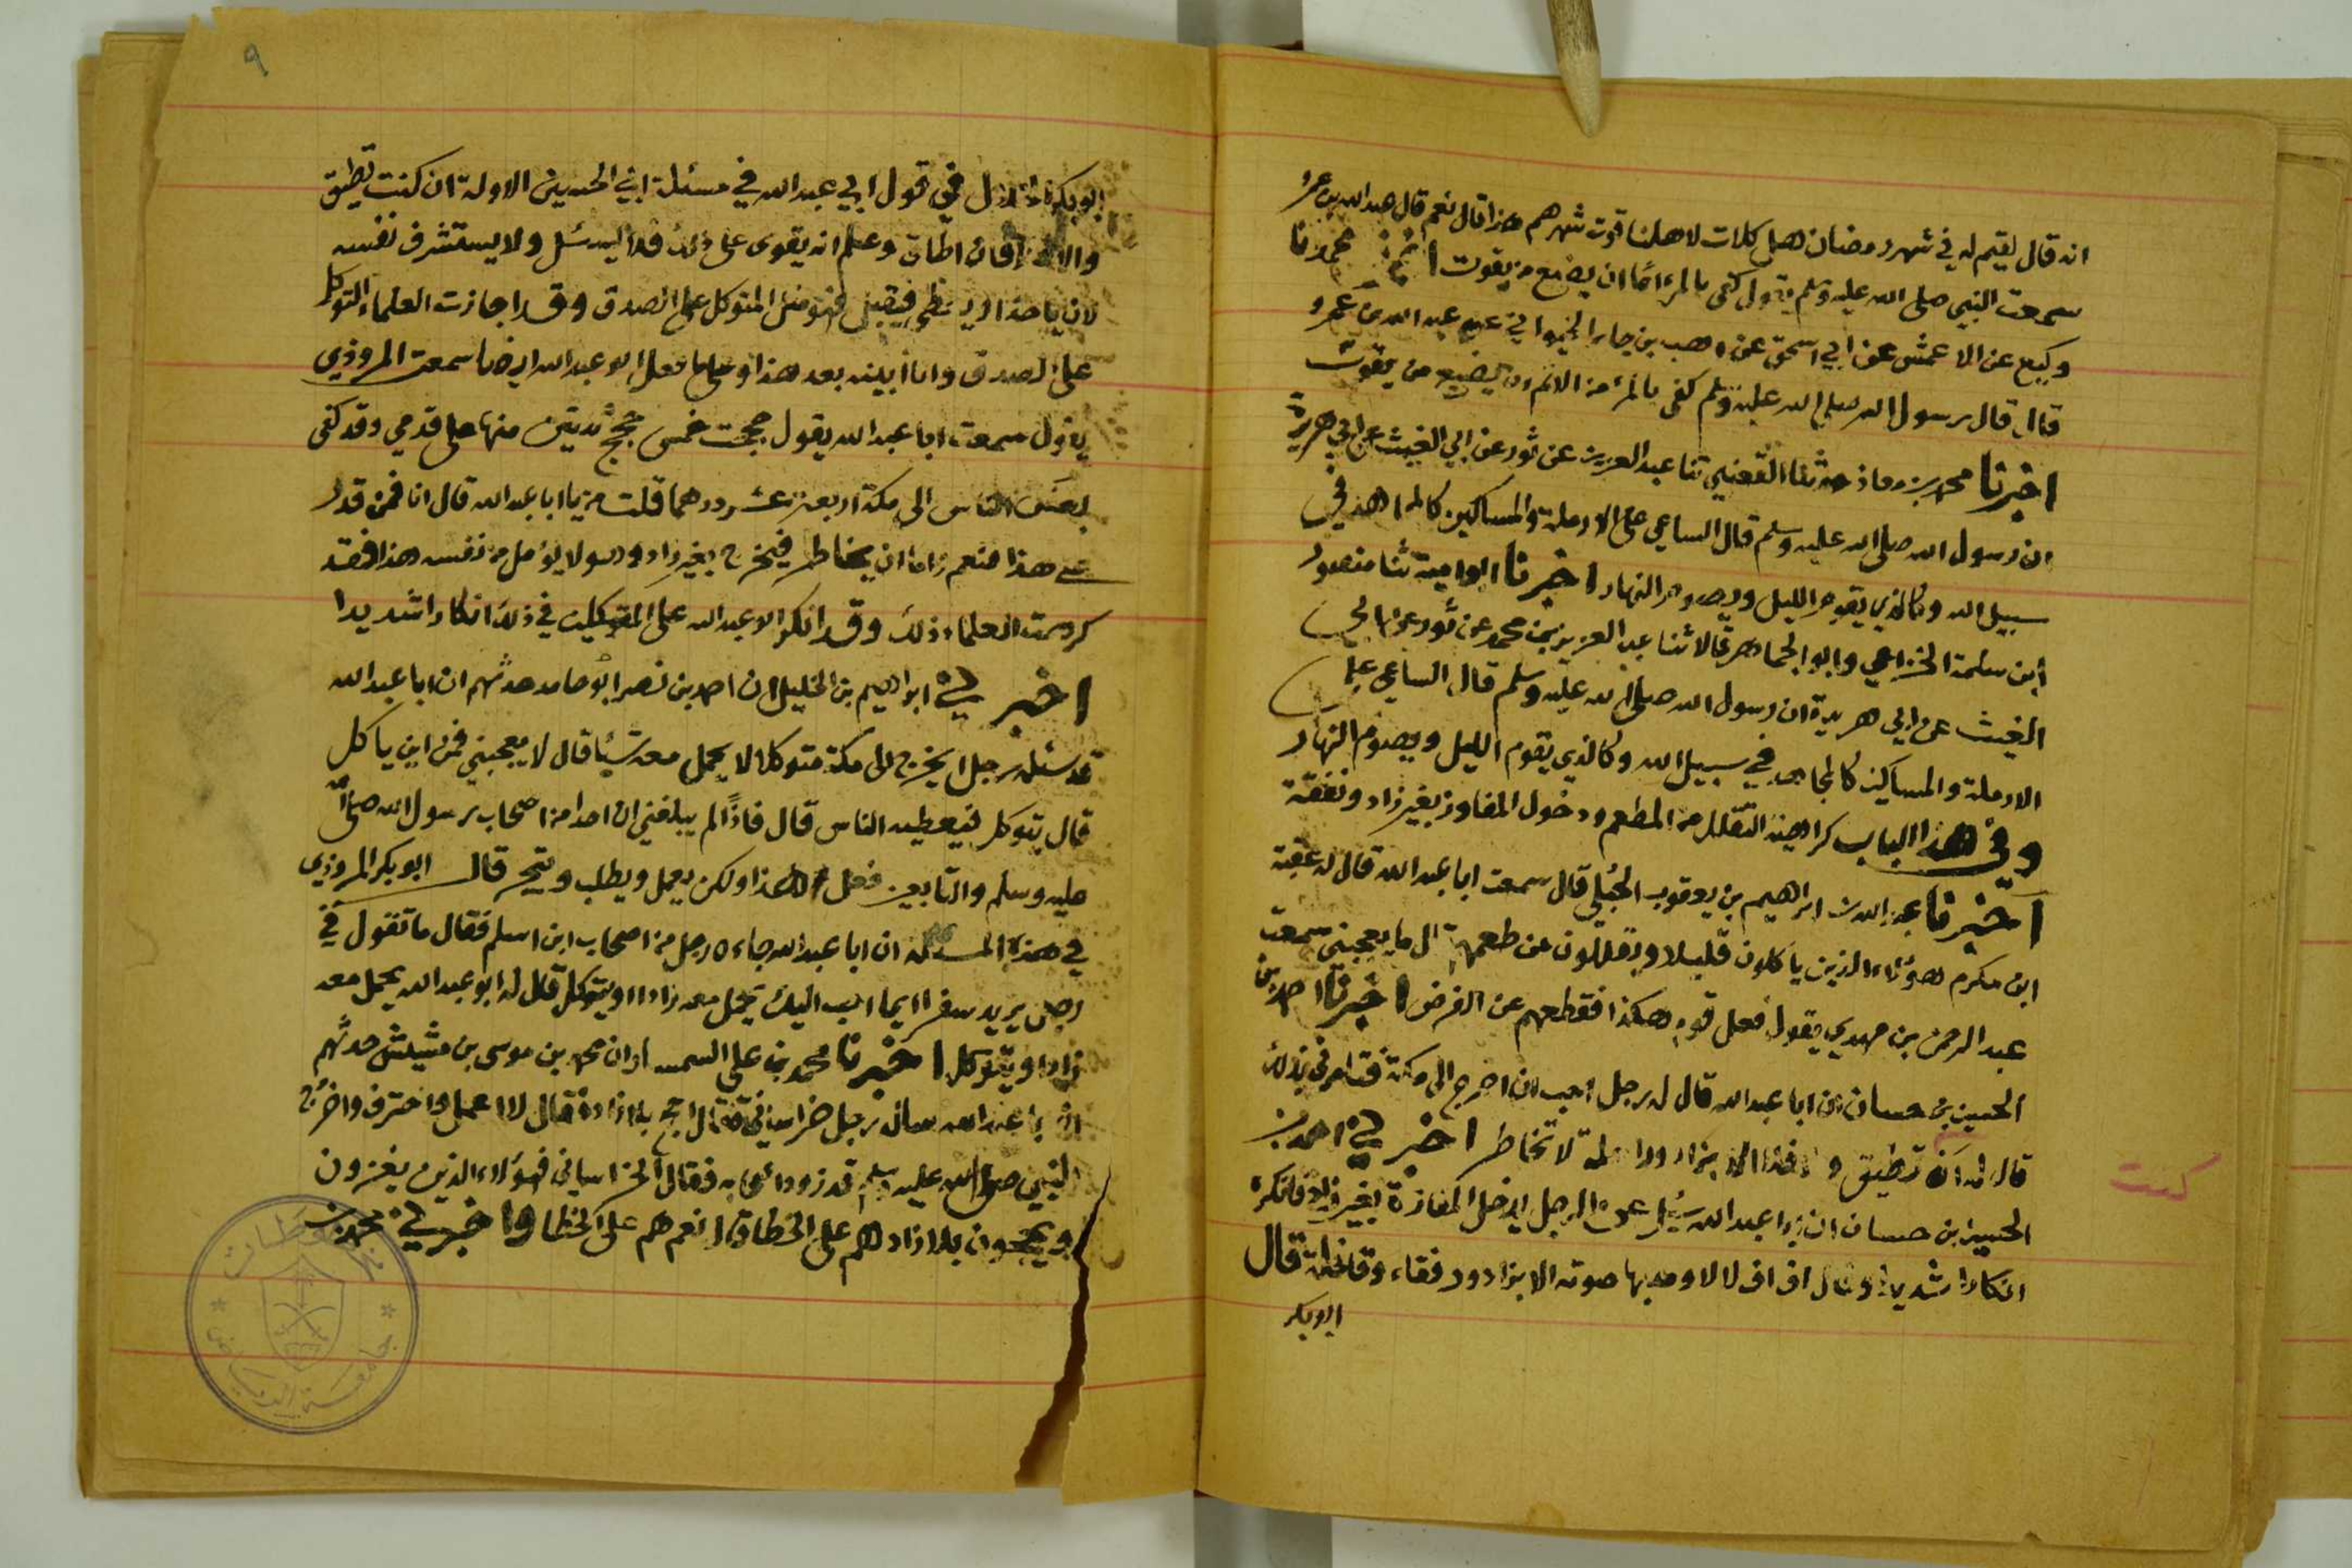 انه قال لقيم له في شهر رمضان هل كلات لاهلنا قوت شهرهم هذا قال نعم قال عبد الله بن عمرو
سمعت النبي صلى الله عليه وسلم يقول كفى بالمرء اثما ان يضيع من يقوت محمد نا
وكيع عن الاعمش عن ابي اسحق عن وهب بن جابر الخيواني عن عبد الله بن عمرو
قال قال رسول الله صلى الله عليه وسلم كفى بالمرء من الاثم ان يضيع من يقوت
اخبرنا محمد بن معاذ حدثنا القعنبي ثنا عبد العزيز عن ثور عن ابي الغيث عن ابي هريرة
ان رسول الله صلى الله عليه وسلم قال الساعي على الارملة والمساكين كالمجاهد في
سبيل الله وكالذي يقوم الليل ويصوم النهار اخبرنا ابو امية ثنا منصور
ابن سلمة الخزاعي وابو الجماهر قالا ثنا عبد العزيز بن محمد عن ثور عن ابي
الغيث عن ابي هريرة ان رسول الله صلى الله عليه وسلم قال الساعي على
الارملة والمساكين كالمجاهد في سبيل الله وكالذي يقوم الليل ويصوم النهار
وفي هذا الباب كراهية التقلل من المطعم ودخول المفاوز بغير زاد ونفقة
اخبرنا عبد الله بن ابراهيم بن يعقوب الجبلي قال سمعت ابا عبد الله قال له عقبة
ابن مكرم هؤلاء الذين ياكلون قليلا ويقللون من طعمهم قال ما يعجبني سمعت
عبد الرحمن بن مهدي يقول فعل قوم هكذا فقطعهم عن الفرض اخبرنا احمد بن
الحسين بن حسان ان ابا عبد الله قال له رجل احب ان اخرج الى مكة فتامرني بذلك
كنت
قال له ان تطيق والا فلا الا بزاد وراحلة لا تخاطر اخبرني احمد بن
الحسين بن حسان ان ابا عبد الله سئل عن الرجل يدخل المفازة بغير زاد فانكره
انكارا شديدا وقال اف اف لا لا ومد بها صوته الا بزاد ورفقاء وقافلة قال
ابو بكر
٩
ابو بكر الخلال في قول ابي عبد الله في مسئلة ابن الحسين الاولة ان كنت تطيق
والا فان اطاق وعلم انه يقوى على ذلك فلا يسئل ولا يستشرف نفسه
لان ياخذ او يعطى فيقبل فهو مثل المتوكل على الصدق وقد اجازت العلماء التوكل
على الصدق وانا ابينه بعد هذا وعلى ما فعل ابو عبد الله ايضا سمعت المروذي
يقول سمعت ابا عبد الله يقول حججت خمس حجج ثنتين منها على قدمي وقد كفى
بعض الناس الى مكة اربعة عشر درهما قلت من يا ابا عبد الله قال انا فمن قدر
على هذا فنعم واما ان يخاطر فيخرج بغير زاد وهو لا يؤمل من نفسه هذا فقد
كرهت العلماء ذلك وقد انكر ابو عبد الله على المتوكلين في ذلك انكارا شديدا
اخبرني ابراهيم بن الخليل ان احمد بن نصر ابو حامد حدثهم ان ابا عبد الله
قد سئله رجل ايخرج الى مكة متوكلا لا يحمل معه شيئا قال لا يعجبني فمن اين ياكل
قال يتوكل فيعطيه الناس قال فاذا لم يبلغني ان احدا من اصحاب رسول الله صلى الله
عليه وسلم والتابعين فعل هذا ولكن يعمل ويطلب ويتجر قال ابو بكر المروذي
في هذه المسئلة ان ابا عبد الله جاءه رجل من اصحاب ابن اسلم فقال ما تقول في
رجل يريد سفرا ايما احب اليك يحمل معه زادا او يتوكل قال له ابو عبد الله يحمل معه
زادا ويتوكل اخبرنا محمد بن علي السمسار ان محمد بن موسى بن مشيش حدثهم
ان ابا عبد الله سأله رجل خراساني فقال احج بلا زاد فقال لا اعمل واحترف واخرج
النبي صلى الله عليه وسلم قد زود اصحابه فقال الخراساني فهؤلاء الذين يغزون
ويحجون بلا زاد هم على الخطا قال نعم هم على الخطا واخبرني محمد بن
مخطوطات
جامعة الرياض